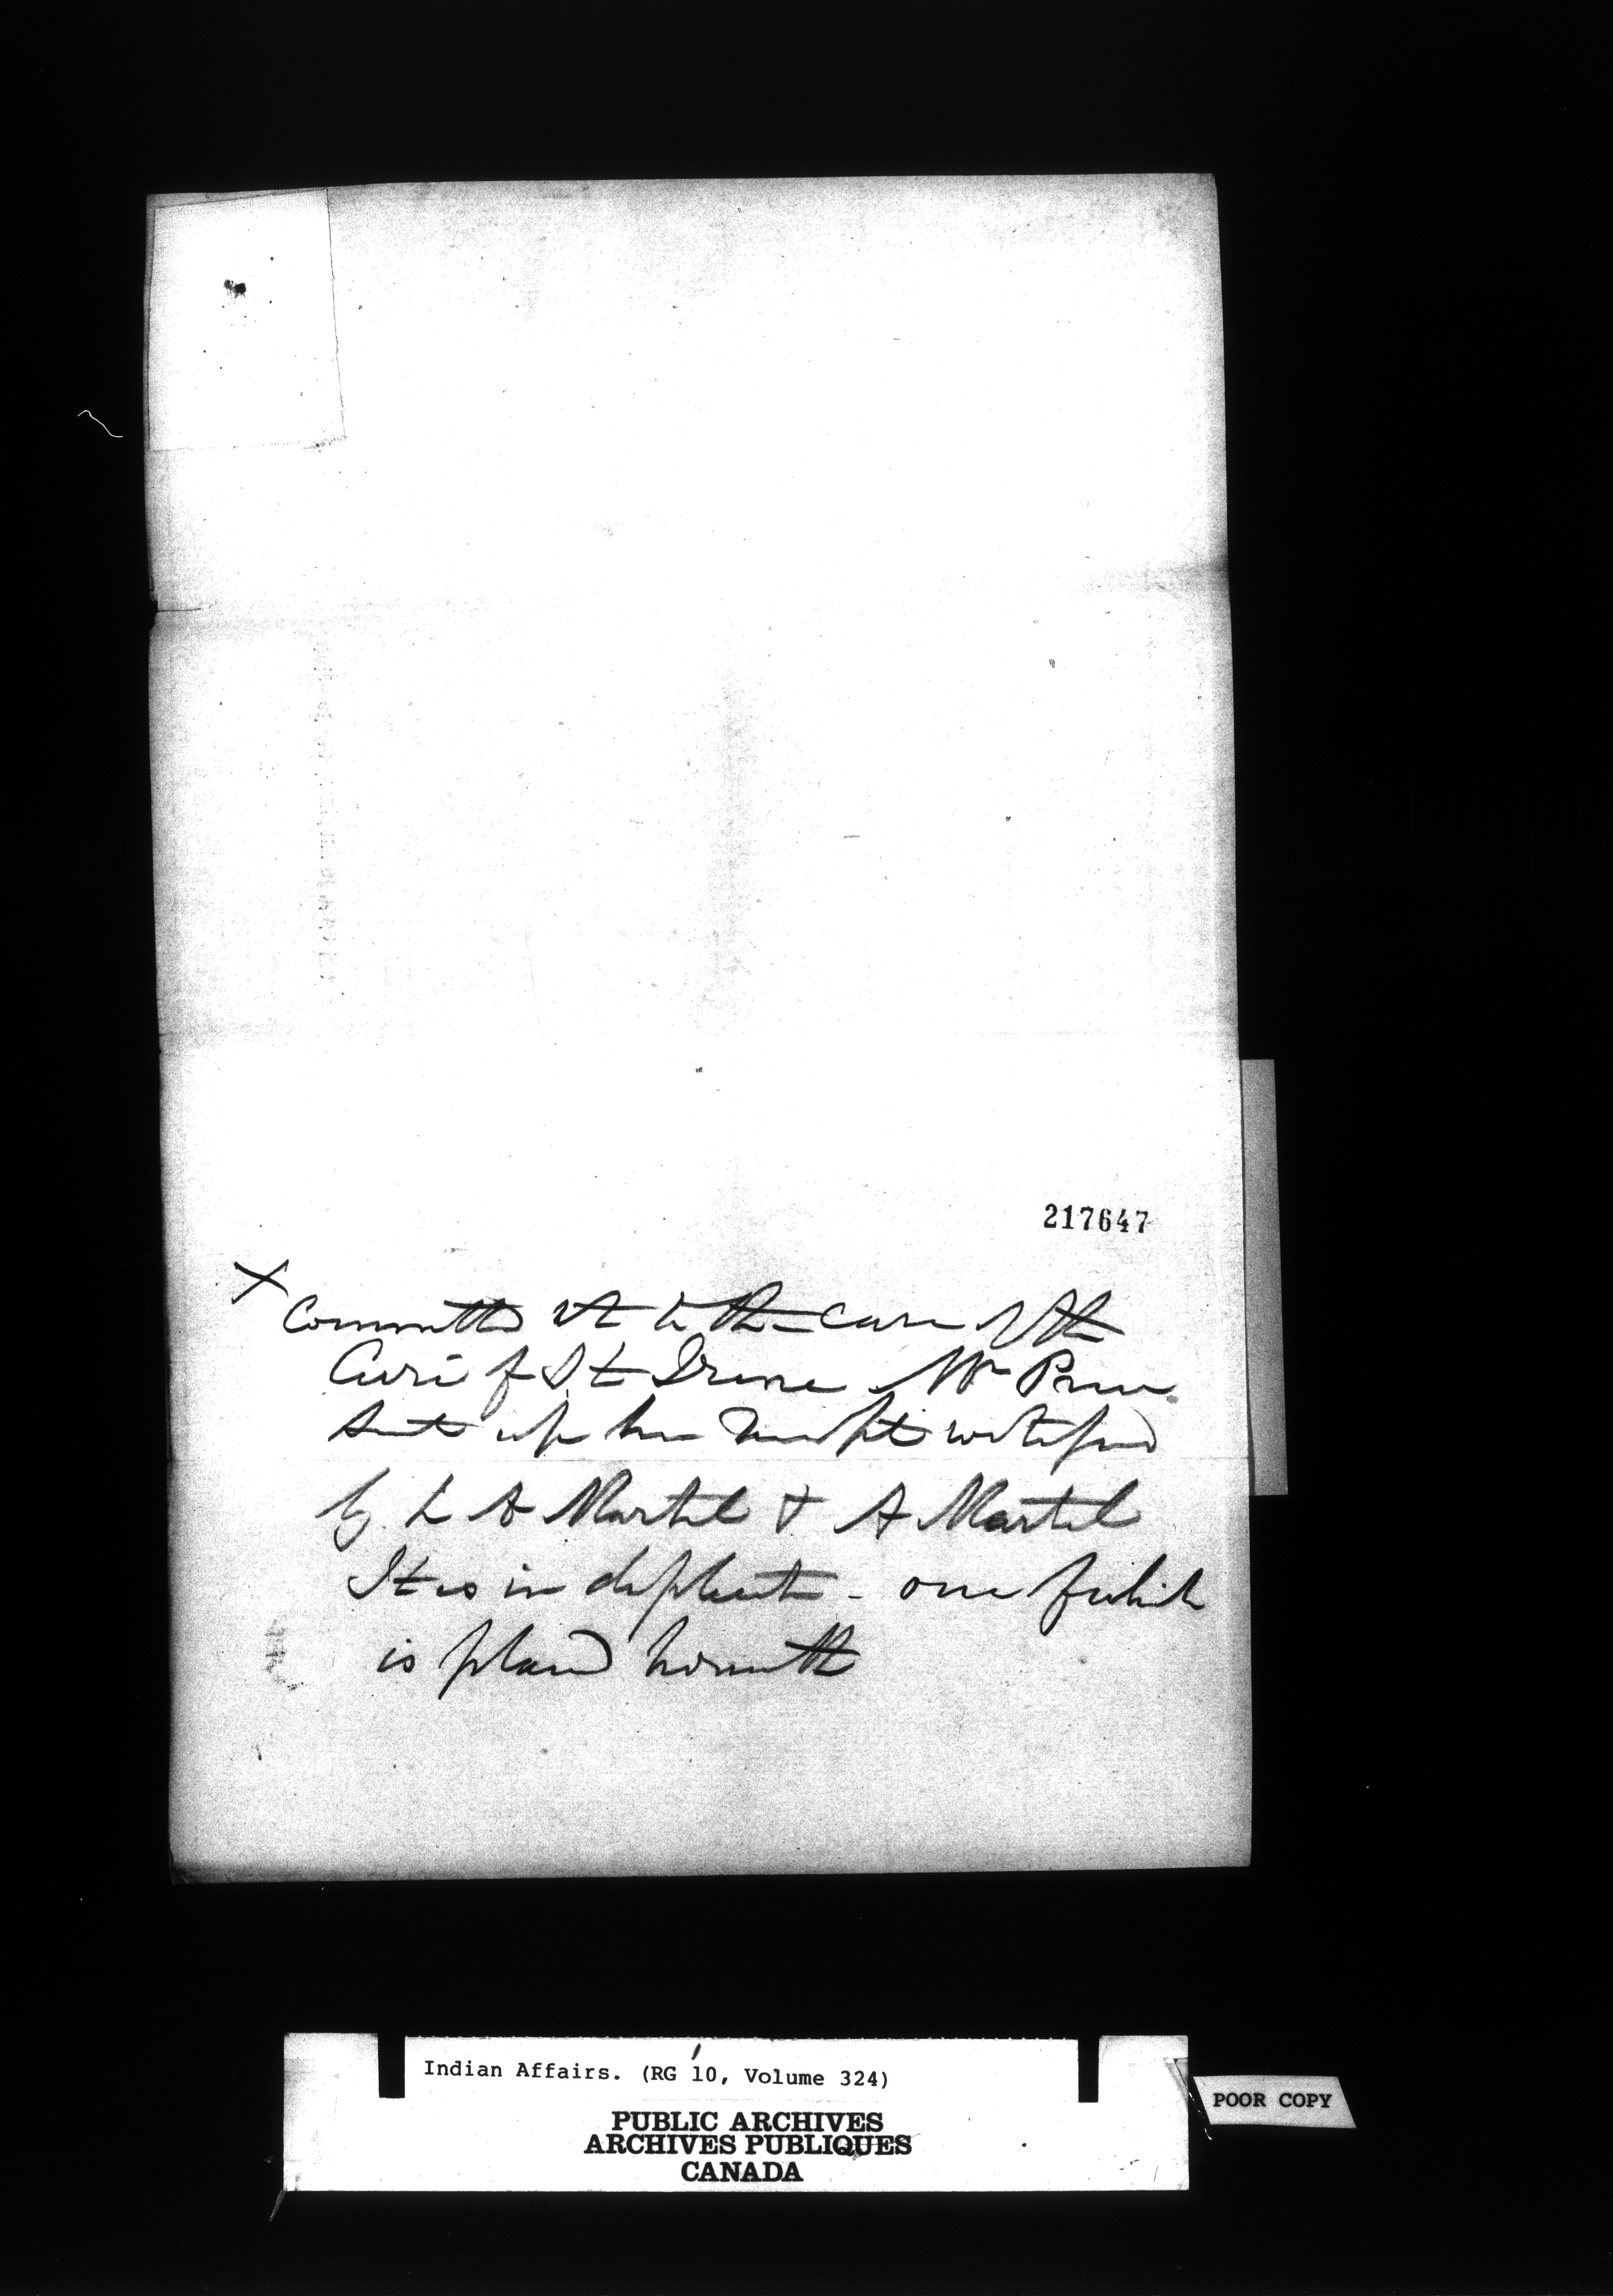 217647
X
Committed it to the care of the
Curé of St Irene Mr
sent up his receipt witnessed
by L A Martel & A Martel
It is in duplicate - one of which
is placed herewith
Indian Affairs. (RG 10, Volume 324)
PUBLIC ARCHIVES
ARCHIVES PUBLIQUES
CANADA
POOR COPY